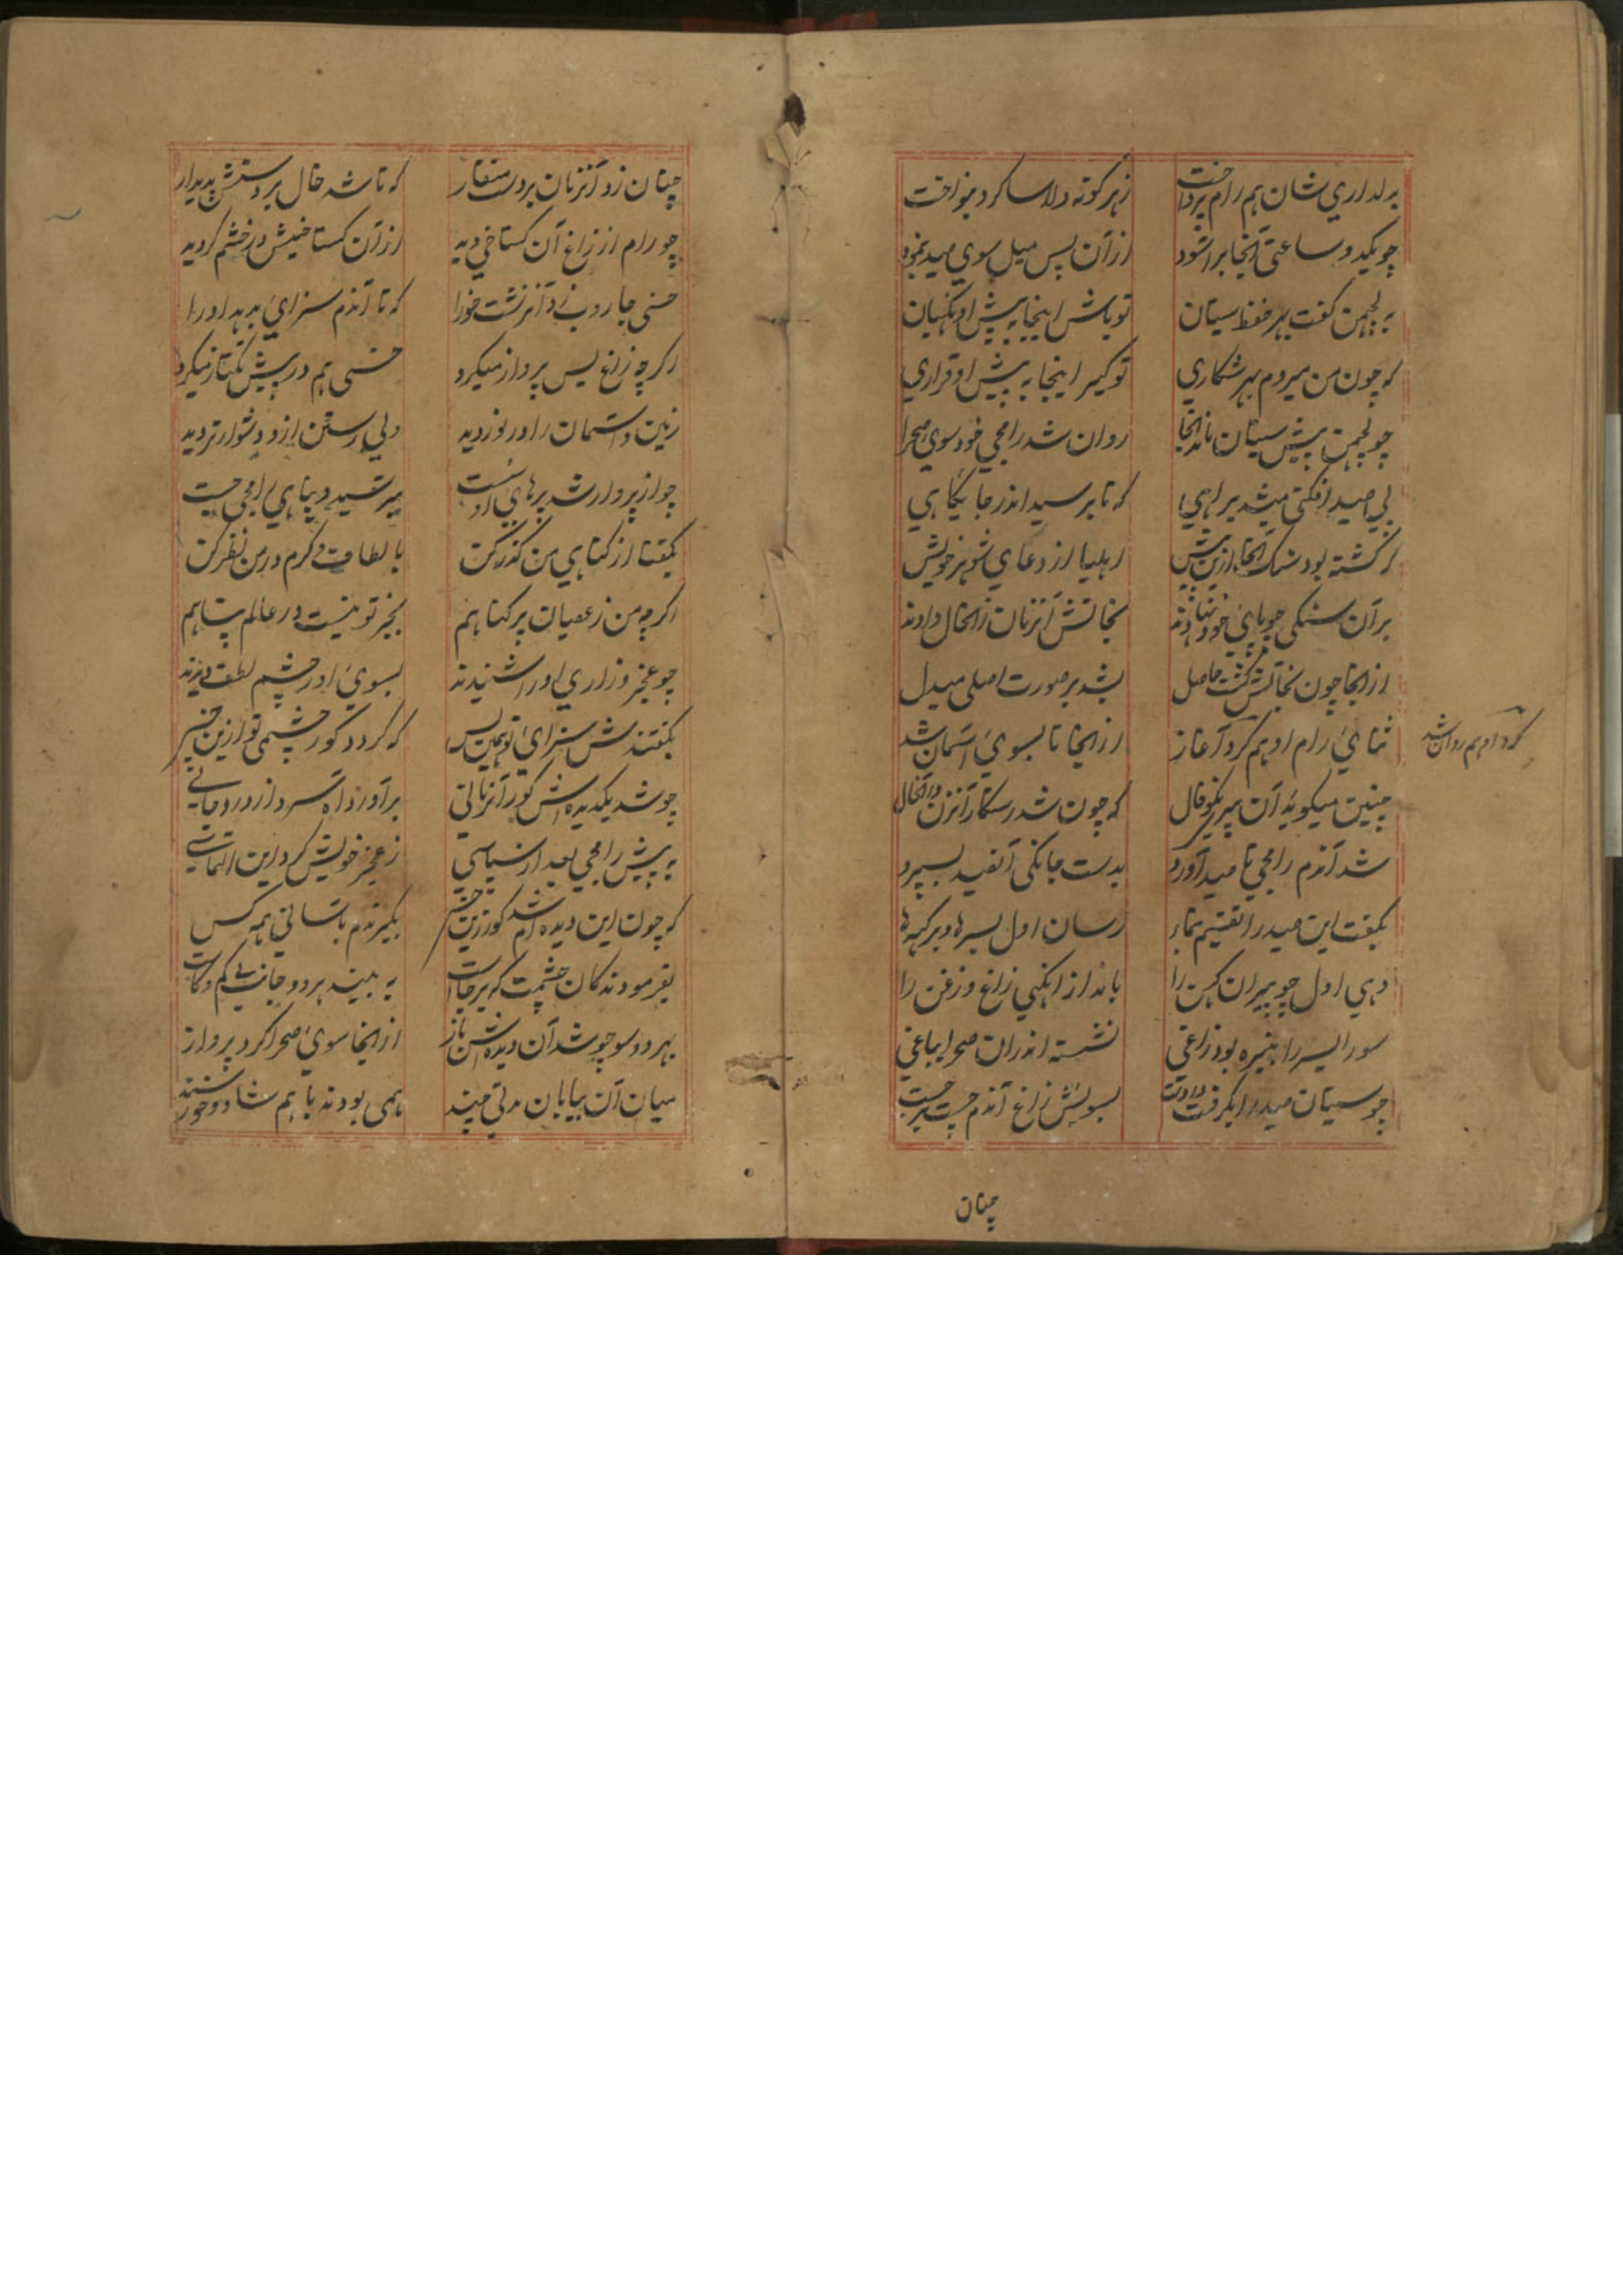 بدلداری شان هم رام پرداخت زهر گونه دلاسا کرد بنواخت
چو یکدو ساعتی آنجا برآسود از آن پس میل سوی صید بنمود
به لچمن گفت بهر حفظ سیتان تو باش اینجا به پیش او نگهبان
که چون من میروم بهر شکاری تو گیر اینجا به پیش او قراری
چو لچمن پیش سیتان ماند آنجا روان شد رامجی خود سوی صحرا
پی صید افکنی میشد براهی که تا برسید اندر جایگاهی
که گشته بود سنک آنجا ازین پیش اهلیا از دعای شوهر خویش
بر آن سنکی چو پای خود نهادند نجاتش آنزمان زانحال دادند
از انجا چون نجاتش گشت حاصل بشد بر صورت اصلی مبدل
ثنای رام او هم کرد آغاز از انجا تا بسوی آسمان شد
کرد او هم روان شد
چنین میگوید آن پیر نکو فال که چون شد رستگار آنزن در آنحال
شد آندم رامجی تا صید آورد بدست جانکی آنصید بسپرد
بگفت این صید را تقسیم بنما رسان اول بسرها و بر که‌ها
دهی اول چو پیران کهن را بانداز افکنی زاغ و زغن را
سورایسر را بنیره بود زاغی نشسته اندران صحرا بباغی
چو سیتان صید را بگرفت در دست بسویش زاغ آندم جست برجست
چنان
چنان زد آنزمان بر دست منقار که تا شد خال بر دستش پدیدار
چو رام از زاغ آن گستاخی دید از آن گستاخیش در خشم گردید
خسی جاروب زد آنزشت خو را که تا آندم سزای بدهد او را
اگرچه زاغ بس پرواز میکرد خسی هم در پیش تگتاز میکرد
زمین و آسمان را در نوردید ولی رستن ازو دشوارتر دید
چو از پرواز شد پرهای او سست بترسید و پناهی رامجی جست
بگفتا از گناهی من گذر کن بالطاف و کرم در من نظر کن
اگرچه من ز عصیان پر گناهم بجز تو نیست در عالم پناهم
چو عجز و زاری او را شنیدند بسوی او ز چشم لطف دیدند
بگفتندش سزای تو همین بس که گردد کور چشمی تو ازین خس
چو شد یکدیده‌اش کور آنزمانی برآورد آه سرد از درد جانی
به پیش رامجی بعد از سپاسی ز عجز خویش کرد این التماسی
که چون این دیده‌ام شد کور زین خس بگیرندم باسانی همه کس
بفرمودند کان چشمت که برجاست به بیند هر دو جانب بی کم و کاست
بهر دو سو چو شد آن دیده‌اش باز از انجا سوی صحرا کرد پرواز
میان آن بیابان مدتی چند همی بودند با هم شاد و خورسند